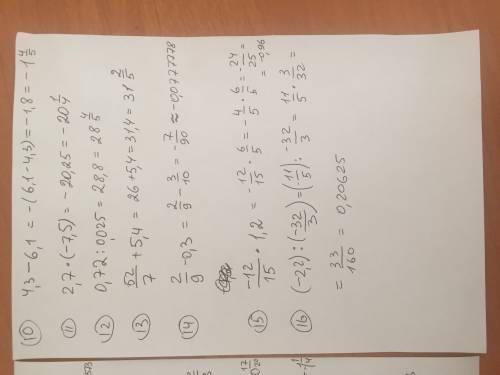 10 4,3 - 6,1 = -(6,1 - 4,3) = -1,8 = -1 4/5
11 2,7 • (-7,5) = -20,25 = -20 1/4
12 0,72 : 0,025 = 28,8 = 28 4/5
13 52/7 + 5,4 = 26 + 5,4 = 31,4 = 31 2/5
14 2/9 - 0,3 = 2/9 - 3/10 = -7/90 ≈ -0,0777778
15 -12/15 • 1,2 = -12/15 • 6/5 = -4/5 • 6/5 = -24/25 = -0,96
16 (-2,2) : (-32/3) = (-11/5) : -32/3 = 11/5 • 3/32 =
= 33/160 = 0,20625
573
17